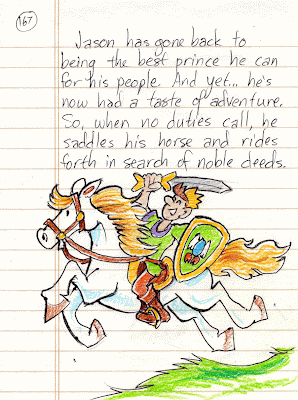 167
Jason has gone back to
being the best prince he can
for his people. And yet... he's
now had a taste of adventure.
So, when no duties call, he
saddles his horse and rides
forth in search of noble deeds.